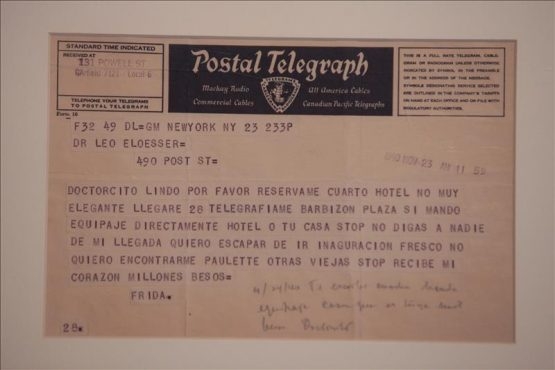 STANDARD TIME INDICATED
RECEIVED AT
131 POWELL ST.
GArfield 7121 - Local 6
TELEPHONE YOUR TELEGRAMS
TO POSTAL TELEGRAPH
Form 16
Postal Telegraph
Mackay Radio
All America Cables
Commercial Cables
Canadian Pacific Telegraphs
THIS IS A FULL RATE TELEGRAM, CABLE-
GRAM OR RADIOGRAM UNLESS OTHERWISE
INDICATED BY SYMBOL IN THE PREAMBLE
OR IN THE ADDRESS OF THE MESSAGE.
SYMBOLS DESIGNATING SERVICE SELECTED
ARE OUTLINED IN THE COMPANY'S TARIFFS
ON HAND AT EACH OFFICE AND ON FILE WITH
REGULATORY AUTHORITIES.
F32 49 DL=GM NEWYORK NY 23 233P
DR LEO ELOESSER=
490 POST ST=
NOV 23 AM 11 55
DOCTORCITO LINDO POR FAVOR RESERVAME CUARTO HOTEL NO MUY
ELEGANTE LLEGARE 28 TELEGRAFIAME BARBIZON PLAZA SI MANDO
EQUIPAJE DIRECTAMENTE HOTEL O TU CASA STOP NO DIGAS A NADIE
DE MI LLEGADA QUIERO ESCAPAR DE IR INAGURACION FRESCO NO
QUIERO ENCONTRARME PAULETTE OTRAS VIEJAS STOP RECIBE MI
CORAZON MILLONES BESOS=
FRIDA.
equipaje
Doctorcito
28